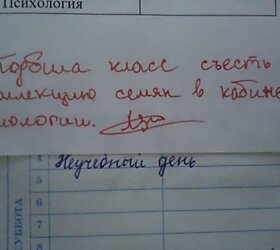 Психология
Подбила класс съесть
коллекцию семян в кабине
биологии.
4 Неучебный день
5
6
7
8
СУББОТА